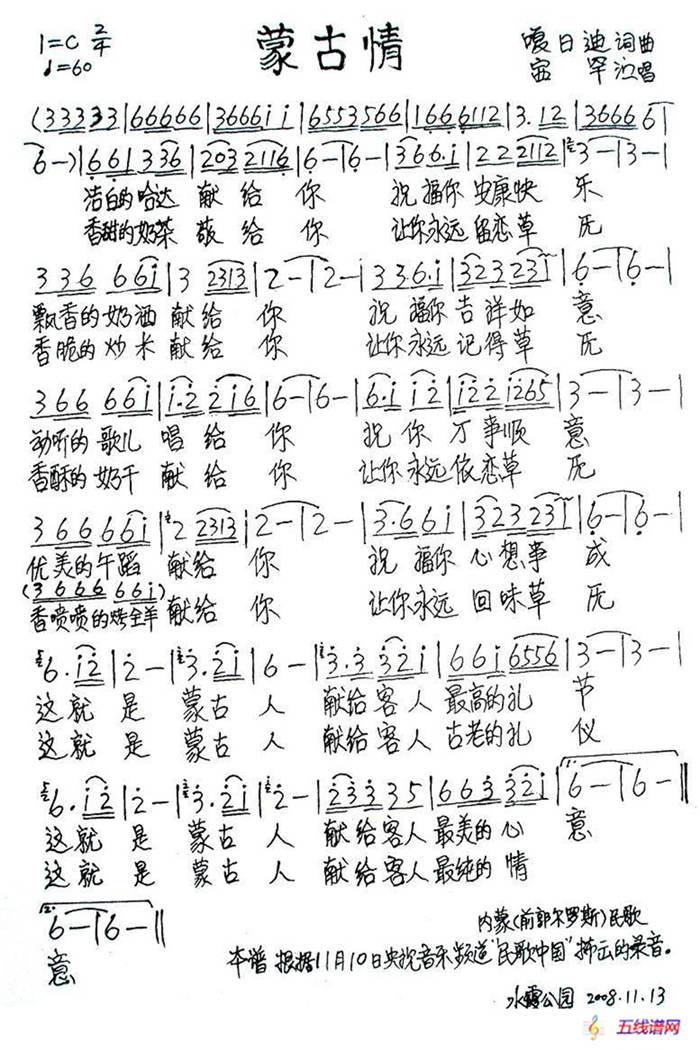 蒙古情
1=C 2/4
♩=60
嘎日迪 词曲
演唱
(33333|66666|3666i i|65533566|1666112|3.12|36666|
6-)|661336|2032116|6-|6-|366.i|2222112|3-|3-|
洁白的哈达 献给 你 祝福你安康快 乐
香甜的奶茶 敬给 你 让你永远留恋草 原
336 66i|3 2313|2-|2-|336.i|323231|6-|6-|
飘香的奶酒 献给 你 祝福你吉祥如 意
香脆的炒米 献给 你 让你永远记得草 原
366 66i|i.2 2i6|6-|6-|6.i i2|i22 i265|3-|3-|
动听的歌儿 唱给 你 祝你 万事顺 意
香酥的奶干 献给 你 让你永远依恋草 原
3666 66i|2 2313|2-|2-|3.6 66i|323231|6-|6-|
优美的午蹈 献给 你 祝福你心想事 成
(3666 66i)
香喷喷的烤全羊 献给 你 让你永远回味草 原
6.i2|2-|3.2i|6-|3.3 32i|66i 6556|3-|3-|
这就 是 蒙古 人 献给客人 最高的礼 节
这就 是 蒙古 人 献给客人 古老的礼 仪
6.i2|2-|3.2i|2-|23335|663 32i|6-|6-:|
这就 是 蒙古 人 献给客人 最美的心 意
这就 是 蒙古 人 献给客人 最纯的 情
6-|6-‖
意
内蒙(前郭尔罗斯)民歌
本谱根据11月10日央视音乐频道"民歌中国"播出的录音。
水霞公园 2008.11.13
五线谱网